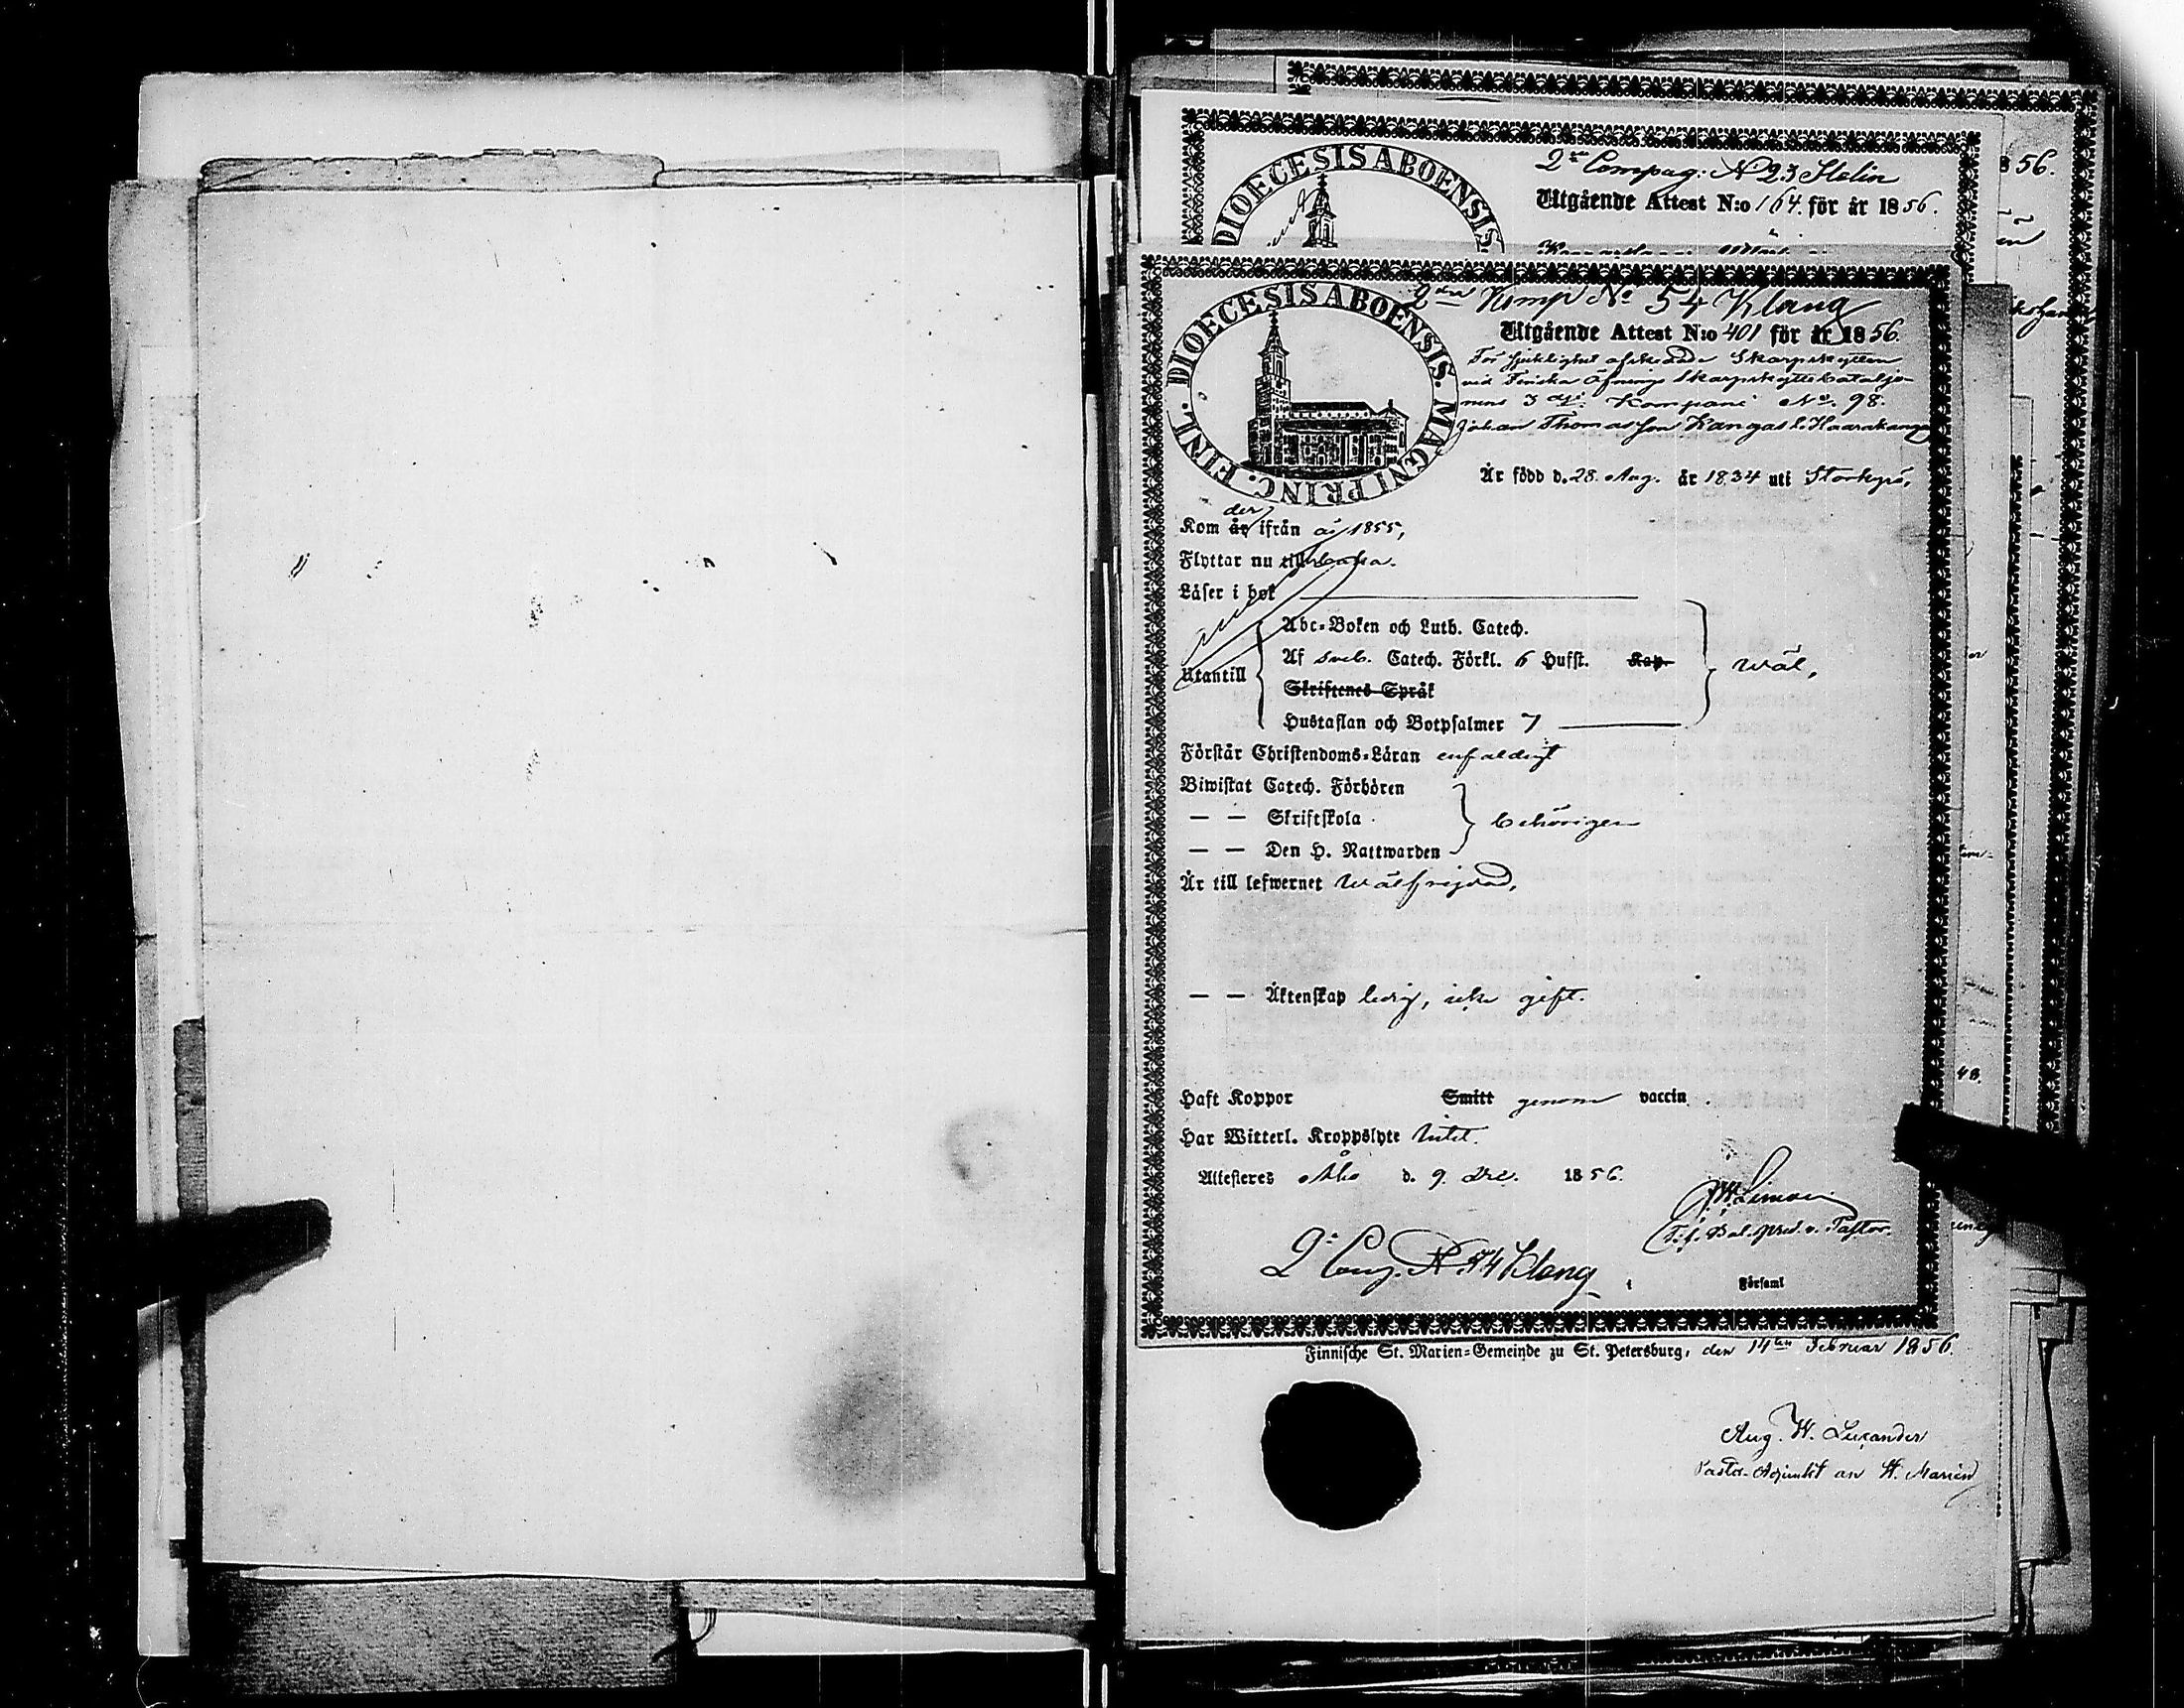 56.
2:a Compag: N 23 Helin
DIOECESIS ABOENSIS
Utgående Attest N:o 164. för år 1856.
2dra Komp No 54 Klang
DIOECESIS ABOENSIS. MAGNI PRINC. FINL.
Utgående Attest N:o 401 för år 1856.
För sjuklighet afskedade Skarpskytten
vid Finska Öfnings Skarpskyttebataljo-
nens 3dje Kompani No. 98.
Johan Thomasson Kangas l. Haarakangas
Är född d. 28. Aug. år 1834 uti Storkyro,
der
Kom år ifrån år 1855,
Flyttar nu till
Läser i bok
Abc-Boken och Luth. Catech.
Af Sveb. Catech. Förkl. 6 Hufst. Kap.
Utantill
wäl,
Skriftenes Språk
Hustaflan och Botpsalmer 7
Förstår Christendoms-Läran enfaldigt
Biwistat Catech. Förhören
— — Skriftskola
behörigen
— — Den H. Nattwarden
Är till lefwernet wälfrejdad,
— — Äktenskap ledig, icke gift.
Haft Koppor Smitt genom vaccin
Har Witterl. Kroppslyte Intet.
Attesteres Åbo d. 9. Dec. 1856.
Pastor.
2: Comp. N 54 Klang
i Församl
Finnische St. Marien-Gemeinde zu St. Petersburg, den 14ten Februar 1856.
Aug. W. Lucander
Pastor-Adjunkt an St. Marien